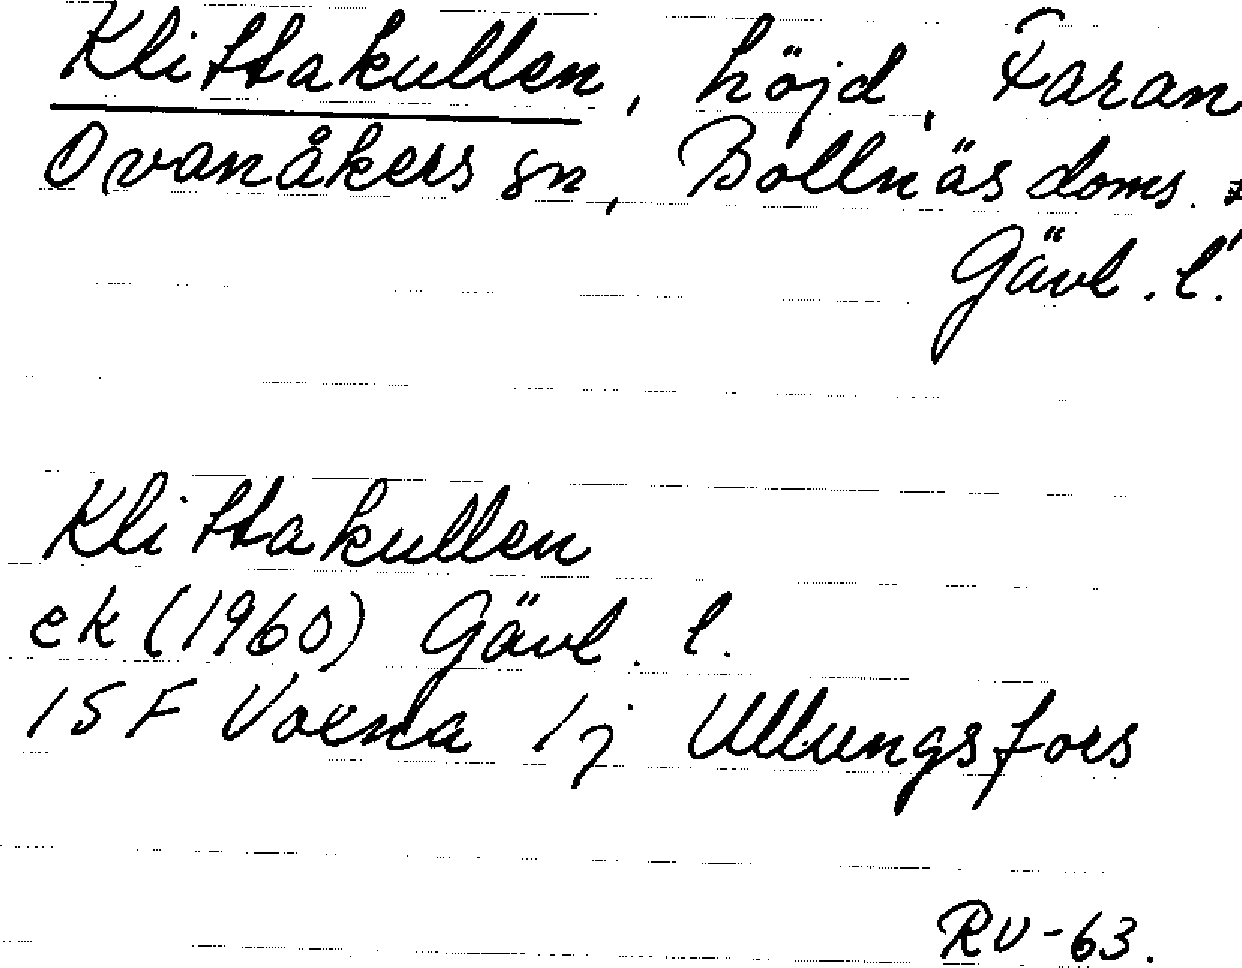 Klittakullen, höjd, Faran
Ovanåkers sn, Bollnäs doms.
Gävl. l.
Klittakullen
ek (1960) Gävl. l.
15 F Voxna 1j Ullungsfors
RV-63.